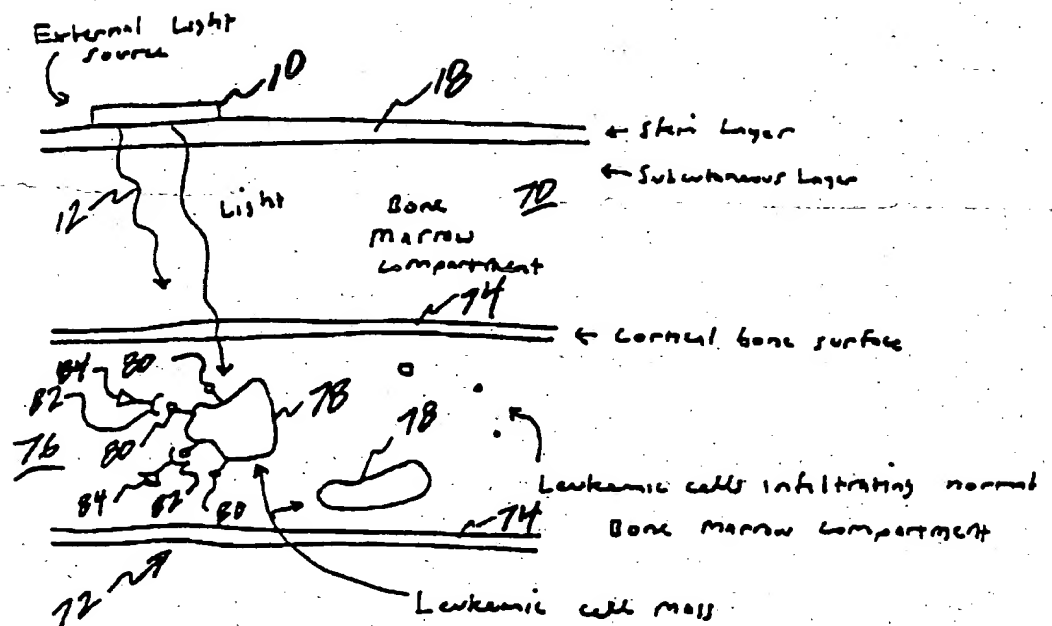 External Light
Source
10
18
← Skin Layer
← Subcutaneous Layer
70
12
Light
Bone
Marrow
compartment
74
← Cortical bone surface
84
80
82
78
76
80
78
84
82
80
Leukemic cells infiltrating normal
Bone Marrow Compartment
74
72
Leukemic cell mass